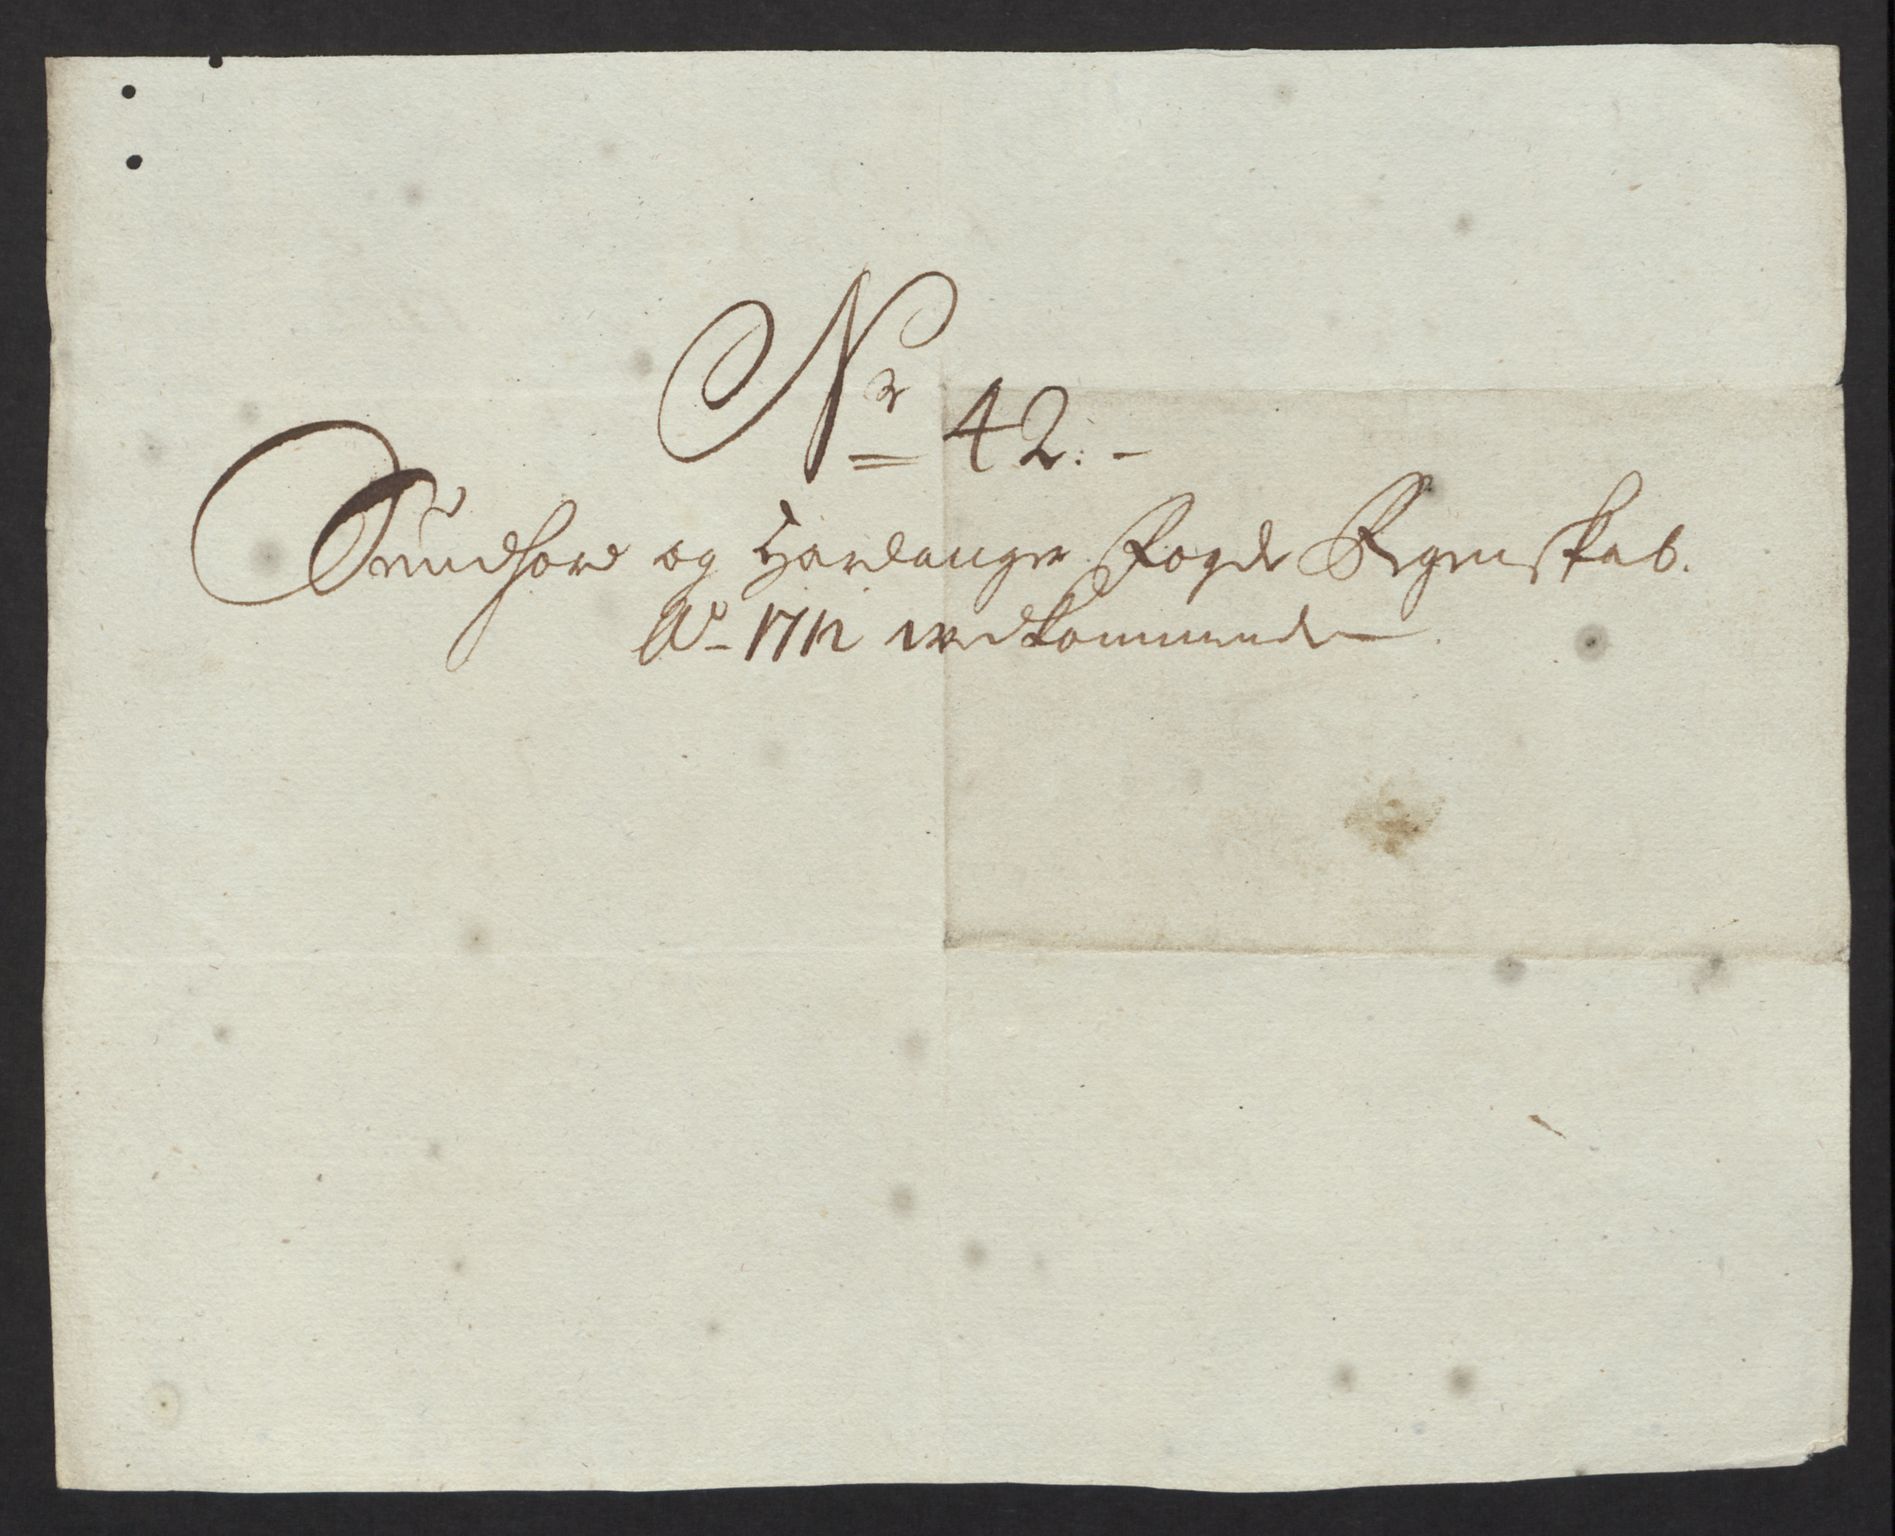 Nr 42:-
Sundhord og Hardanger Fogde Regenskab.
Ao 1712 vedkommende